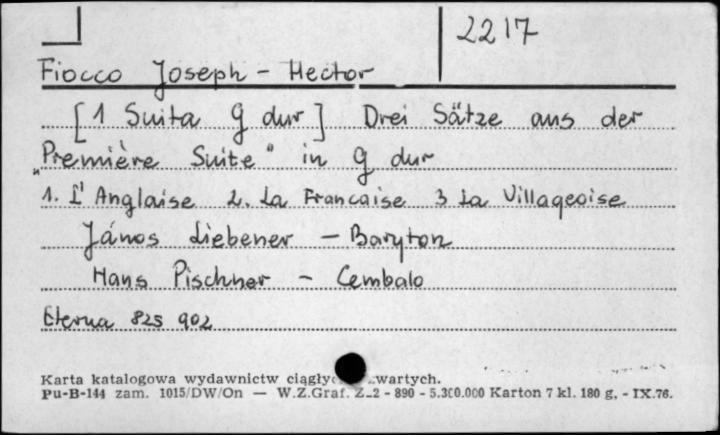 2217
Fiocco Joseph - Hector
[1 Suita G dur] Drei Sätze aus der
„Première Suite" in G dur
1. L'Anglaise 2. La Francaise 3 La Villageoise
János Liebener - Baryton
Hans Pischner - Cembalo
Eterna 825 902
Karta katalogowa wydawnictw
Pu-B-144 zam. 1015/DW/On — W.Z.Graf. Z-2 - 890 - 5.300.000 Karton 7 kl. 180 g. - IX.76.